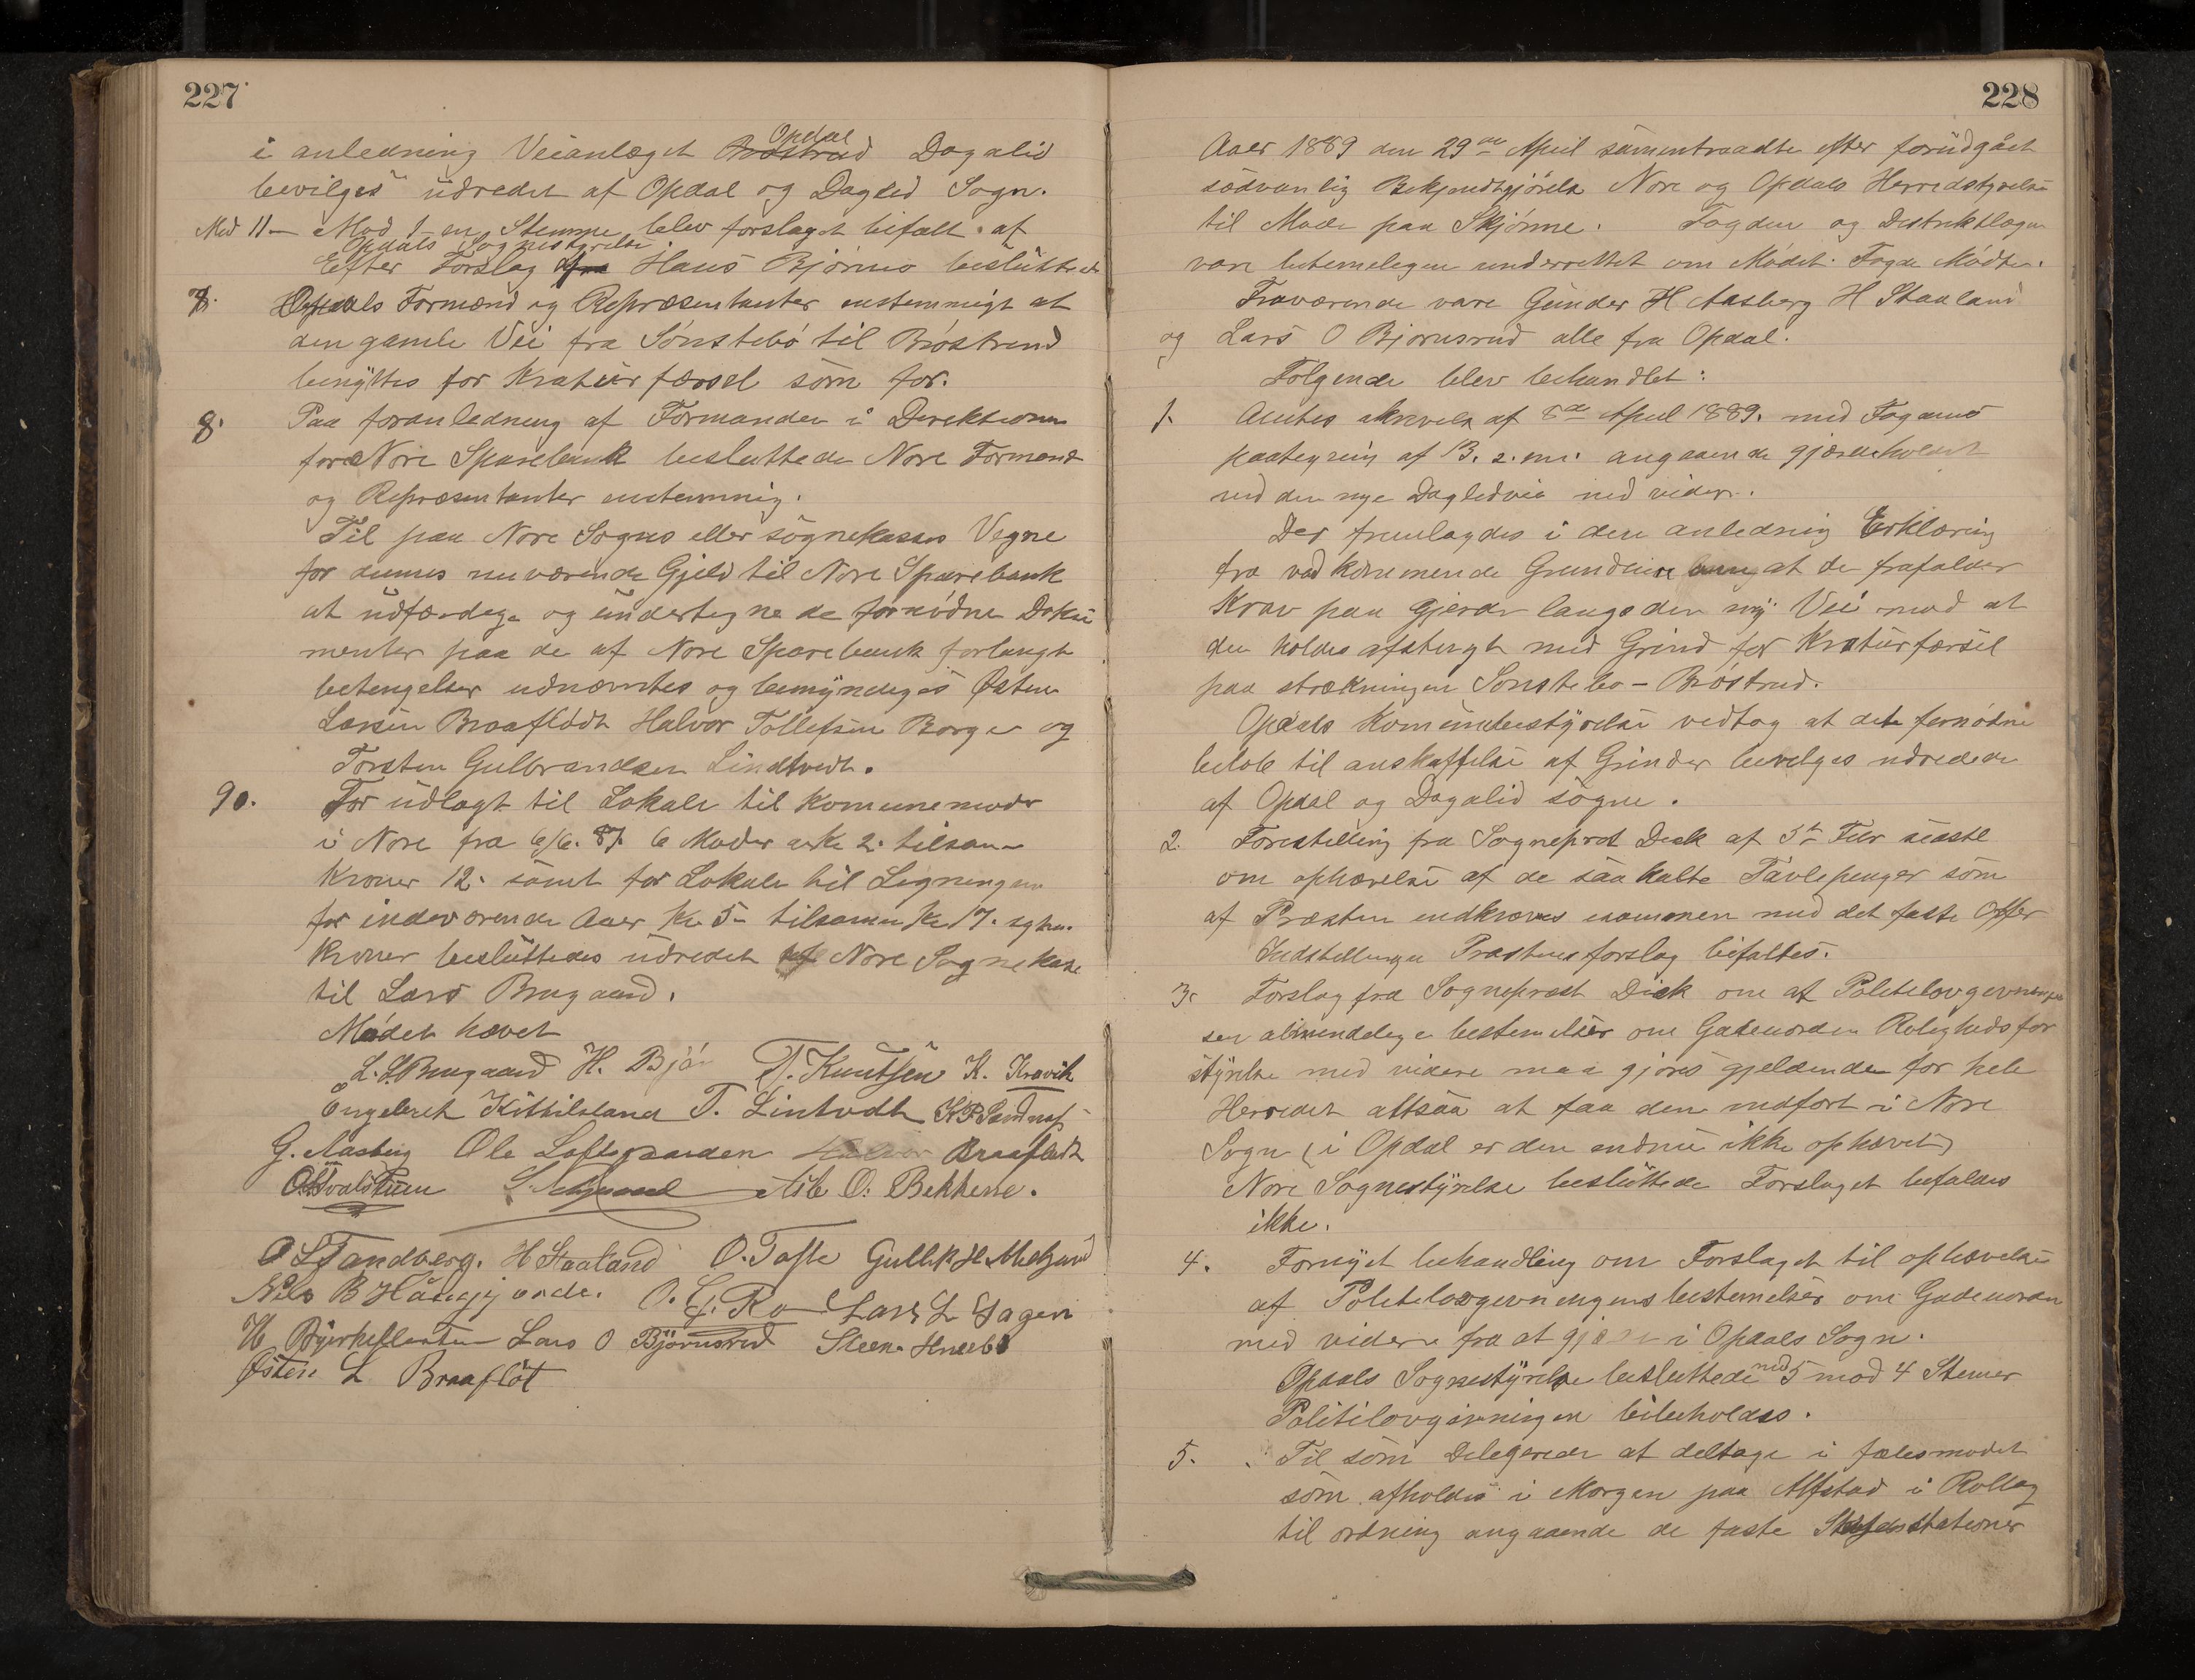 227
i anledning Veianlæget Opdal Dagalid
bevilges udredet af Opdal og Daglid Sogn.
Med 11 – Mod 1 en Stemme blev forslaget bifalt af
Opdals Sognestyrelse
Efter Forslag fra Hans Bjørnes besluttede
7. Opdals Formænd og Repræsentanter enstemmigt at
den gamle Vei fra Sønstebø til Brøstrud
benyttes for Kraturfærsel som før.
8. Paa foranledning af Formanden i Direktionen
for Nore Sparebank besluttede Nore Formænd
og Repræsentanter enstemmig.
Til paa Nore Sogns eller sognekasses Vegne
for dennes nuværende Gjeld til Nore Sparebank
at udfærdige og undertegne de fornødne Doku
menter paa de af Nore Sparebank forlangte
betengelser udnævntes og bemyndiges Østen
Larsen Braaflødt Halvor Tollefsen Borge og
Torsten Gulbrandsen Lindtvedt.
90. For udlagt til Lokale til Komunemøder
i Nore fra 6/6. 87. 6 Møder a Kr 2. tilsam
Kroner 12. samt for Lokale til Ligningen
for indeværende Aar Kr 5 – tilsamen Kr 17. sytten
Kroner besluttedes udredet af Nore Sognekasse
til Lars Brugaard.
Mødet hævet
L. L. Brugaard H. Bjør T. Knutsen K. Kravik
Engebret Kittilsland T. Lintvedt K P Sandnes
G. Aasberg Ole Loftsgaarden Halvor Braafledt
O Tvaltuen Asle O. Bekkerne.
O L Tandberg. H Staaland O. Tofte Gullik H. Mehjard
Nils B Haugjorde. O. G. Ro Lars L Hagen
H Bjerkeflaaten Lars O Bjørnsrud Steen Hneebo
Østen L Braafløt
228
Aaer 1889 den 29de April samentraadte efter forudgået
sædvanlig Bekjendtgjørelse Nore og Opdals Herredstyrelse
til Møde paa Skjønne. Fogden og Distriktlægen
vare betimeligen underrettet om Mødet. Fogden Mødte.
Fraværende vare Gunder H Aasberg H Staaland
og Lars O Bjørnsrud alle fra Opdal.
Følgende blev behandlet:
1. Amtes skrivelse af 8de April 1889. med Fogdens
paategning af 13. s. m. angaaende gjærdehold
ved den nye Dagledvei med videre.
Der fremlagdes i den anledning Erklæring
fra vedkommende Grundeiere at de frafalder
Krav paa Gjerde langs den ny Vei mod at
den holdes afstengt med Grind for Kraturfærsel
paa strækningen Sønstebø – Brøstrud.
Opdals Komunebestyrelse vedtog at det fornødne
beløb til anskaffelse af Grinder bevilges udredede
af Opdal og Dagalid sogne.
2. Forestilling fra Sogneprest Dick af 5te Febr sidstl
om ophævelse af de saakalte Tavlepenger som
af Præsten indkræves sammen med det faste Offer
Indstillingen Præstens forslag bifaltes.
3. Forslag fra Sogneprest Dick om at Politilovgivningen
sen almindelige bestemelser om Gadeuorden Rolighedsfor
styrelse med videre maa gjøres gjeldende for hele
Herredet altsaa at faa den indført i Nore
Sogn (i Opdal er den endnu ikke ophævet)
Nore Sognestyrelse besluttede Forslaget bifaldes
ikke.
4. Fornyet behandling om Forslaget til ophævelse
af Politilovgivningens bestemelser om Gadeuorden
med videre fra at gjælde i Opdals Sogn.
Opdals Sognestyrelse besluttede med 5 mod 4 Stemer
Politilovgivningen bibeholdes.
5. Til som Delegerede at deltage i fælesmødet
som afholdes i Morgen paa Alfstad i Rollag
til ordning angaaende de faste Skydsstationer